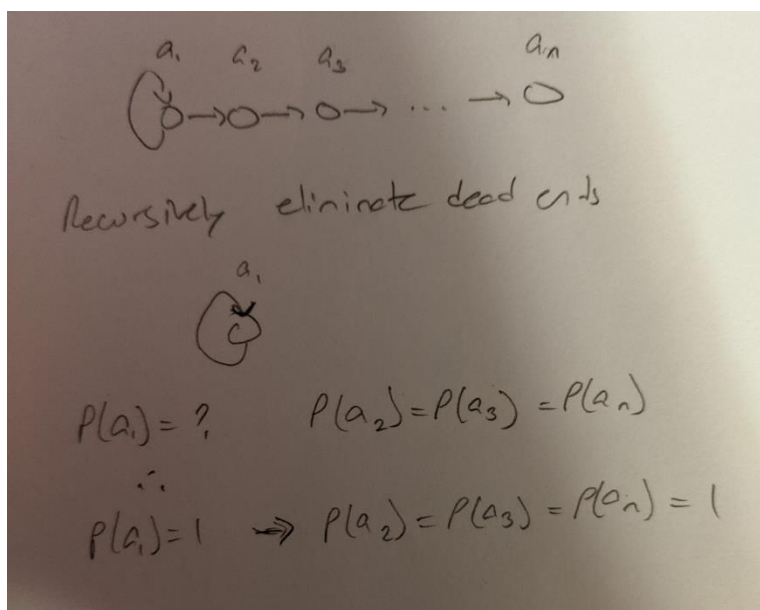 a₁ a₂ a₃ aₙ
→ → → ... →
Recursively eliminate dead ends
a₁
P(a₁) = ? P(a₂) = P(a₃) = P(aₙ)
∴
P(a₁) = 1 → P(a₂) = P(a₃) = P(aₙ) = 1